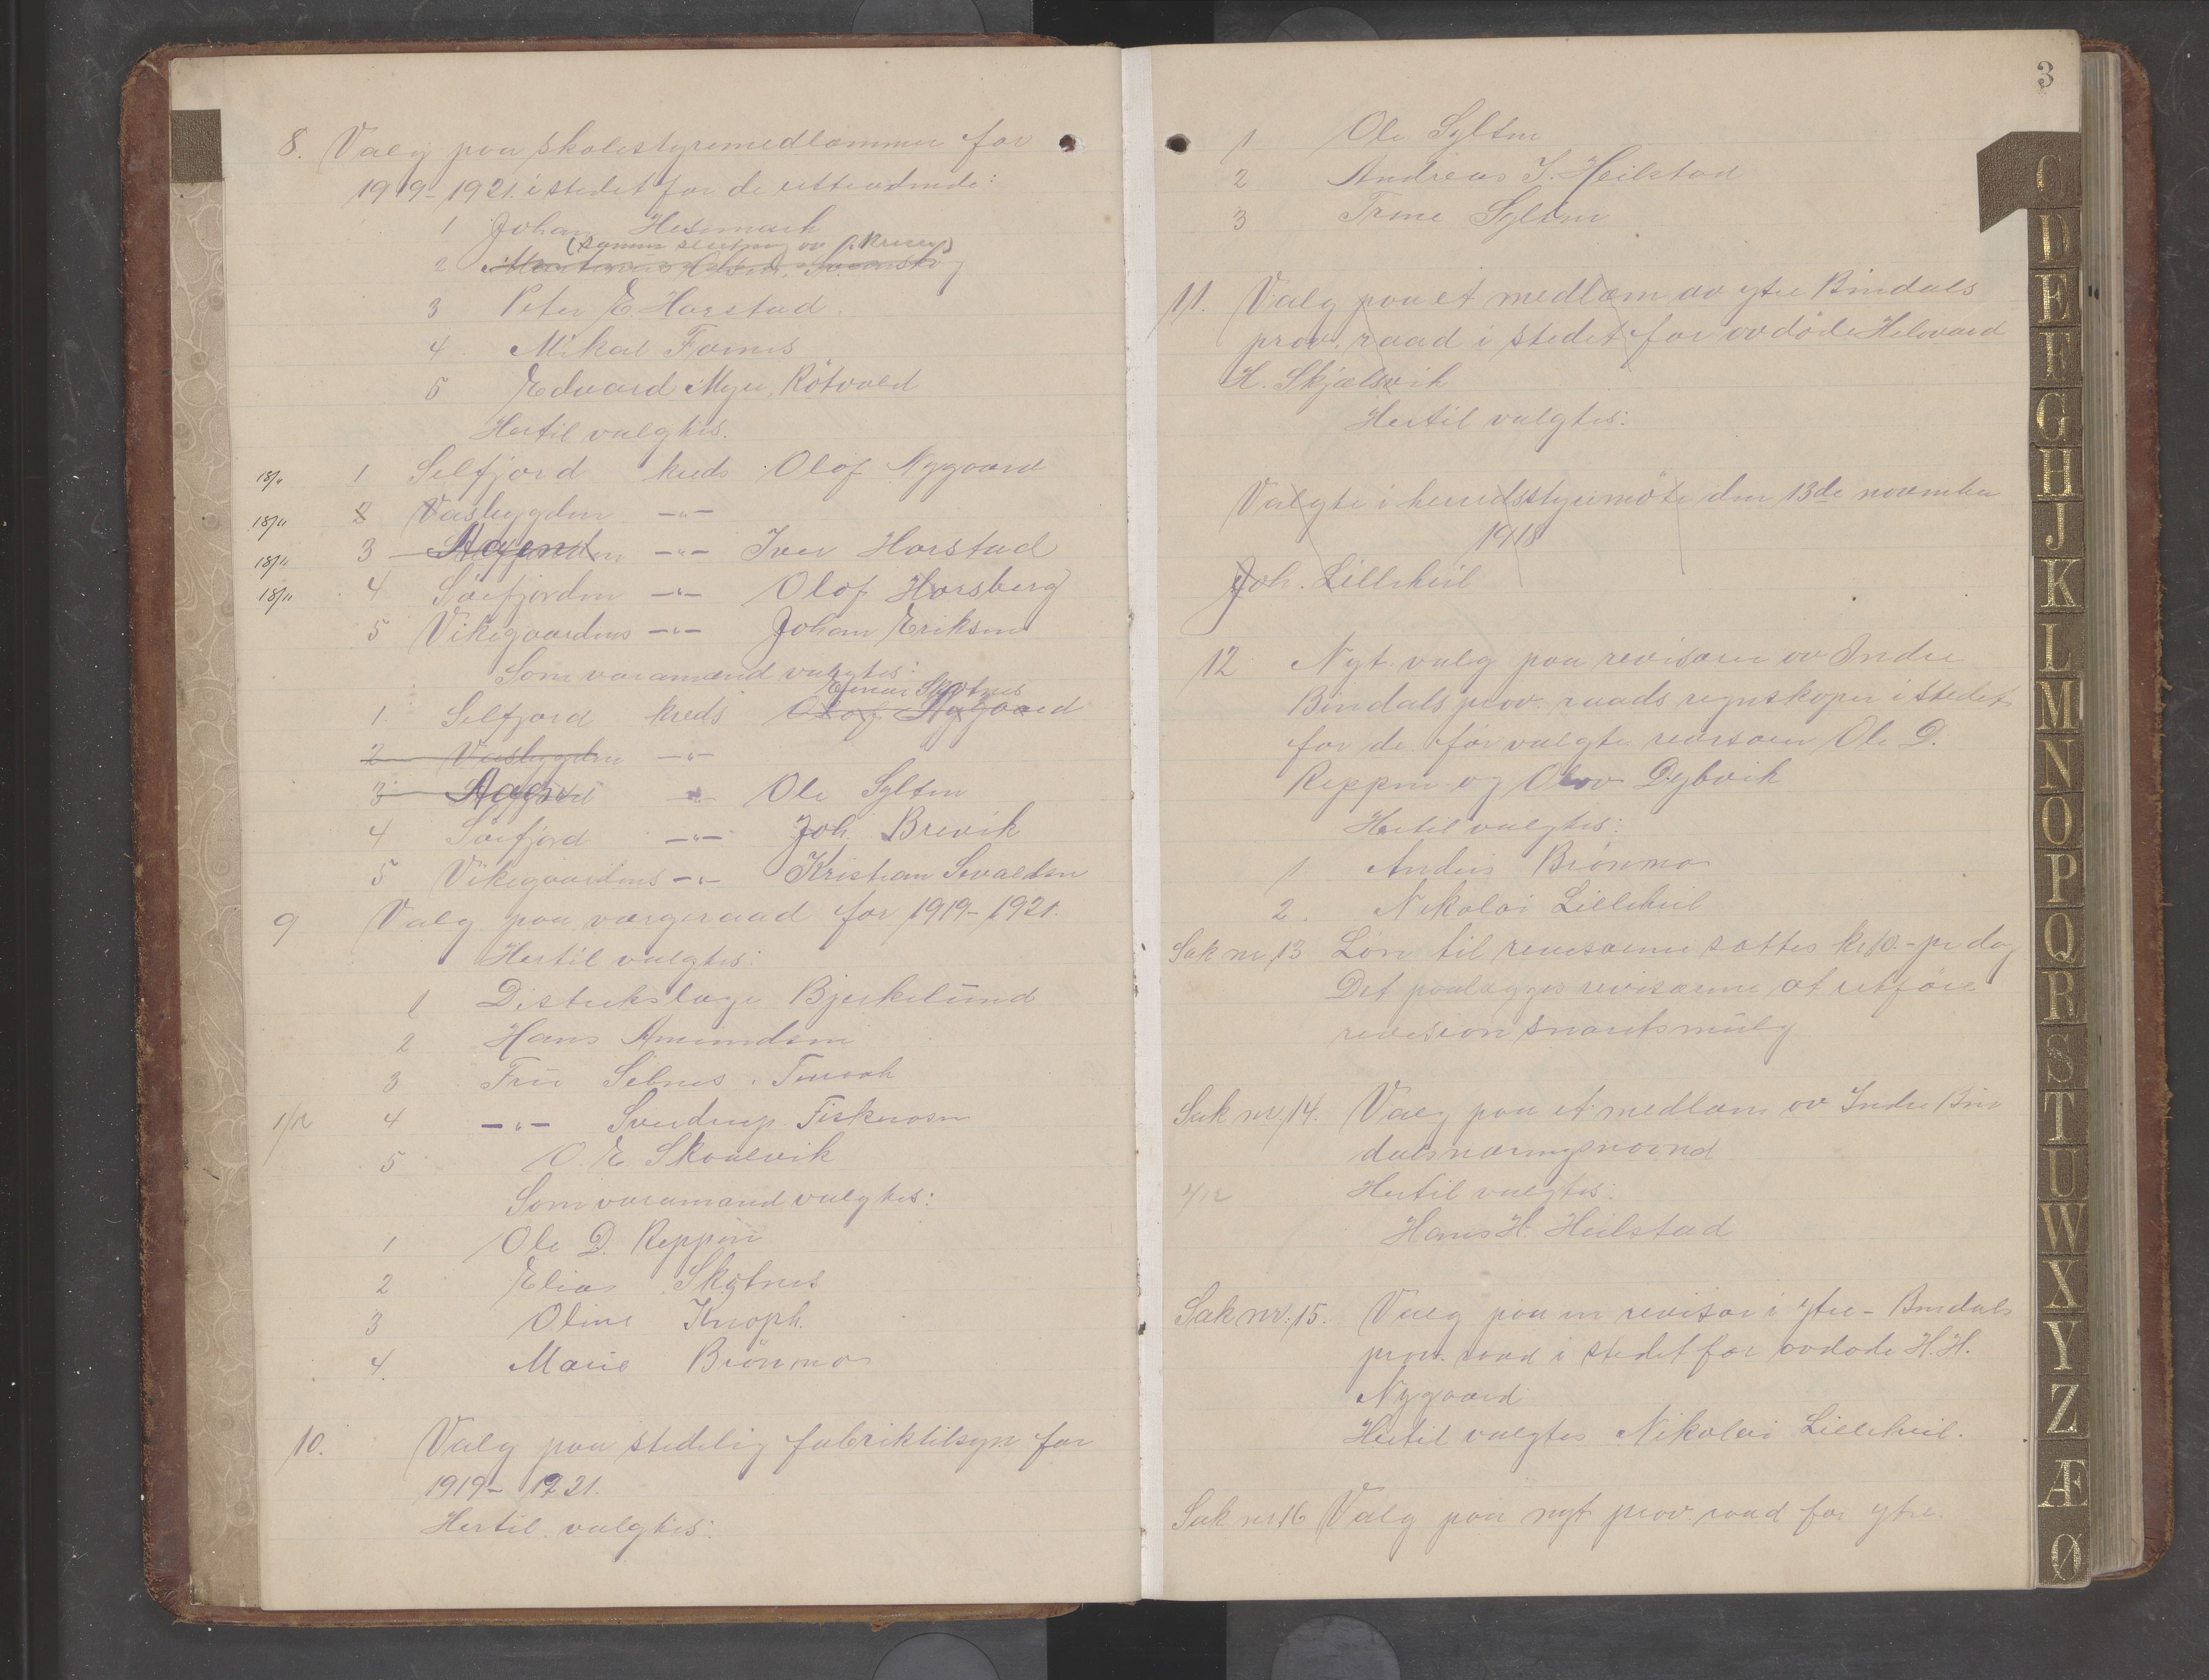 8. Valg paa skolestyremedlemmer for
1919-1921 i stedet for de uttrædende:
1 Johan Hesmark
(samme av kreds)
2
3 Peter E. Horstad
4 Mikal Fornes
5 Edvard Myre, Røtvold
Hertil valgtes.
18/11 1 Selfjord kreds Olof Nygaard
18/11 2 Vasbygden -"-
18/11 3 Aagen -"- Iver Horstad
18/11 4 Sørfjorden -"- Olof Horsberg
5 Vikegaardens -"- Johan Eriksen
Som varamænd valgtes:
Einar Skotnes
1. Selfjord kreds Olof Nygaard
2 Vasbygden -"-
3 Aagen -"- Ole Sylten
4 Sørfjord -"- Joh. Brevik
5 Vikegaardens -"- Kristian Sevaldsen
9 Valg paa vergeraad for 1919-1921.
Hertil valgtes:
1 Distrikslæge Bjerkelund
2 Hans Amundsen
3 Fru Selnes, Terraak
1/12 4 -"- Sverdrup Fiskerosen
5 O. E. Skaalvik
Som varamænd valgtes:
1 Ole D. Reppen
2 Elias Skotnes
3 Oline Knoph.
4. Marie Brønmo
10. Valg paa stedelig fabriktilsyn for
1919-1921.
Hertil valgtes:
3
1 Ole Sylten
2 Andreas J. Heilstad
3 Trine Sylten
11. Valg paa et medlem av ytre Bindals
prov. raad i stedet for avdøde Helvard
H. Skjelsvik
Hertil valgtes:
Valgte i herredsstyremøte den 13de november
1918
Joh. Lilleheil
12 Nyt valg paa revisorer av Indre
Bindals prov. raads regnskaper i stedet
for de før valgte revisorer Ole D.
Reppen og Olov Dybvik
Hertil valgtes:
1 Anders Brønmo
2. Nikolai Lilleheil
Sak nr. 13 Løn til revisorerne sættes kr 10.- pr dag
Det paalægges revisorerne at utføre
revision snarest mulig
Sak nr. 14. Valg paa et medlem av Indre Bin
dals næringsnævnd
4/12 Hertil valgtes:
Hans H. Heilstad
Sak nr. 15. Valg paa en revisor i ytre-Bindals
prov. raad i stedet for avdøde H. H.
Nygaard
Hertil valgtes Nikolai Lilleheil.
Sak nr 16 Valg paa nyt prov. raad for ytre.
C
D
E
F
G
H
J
K
L
M
N
O
P
Q
R
S
T
U
W
X
Y
Z
Æ
Ø